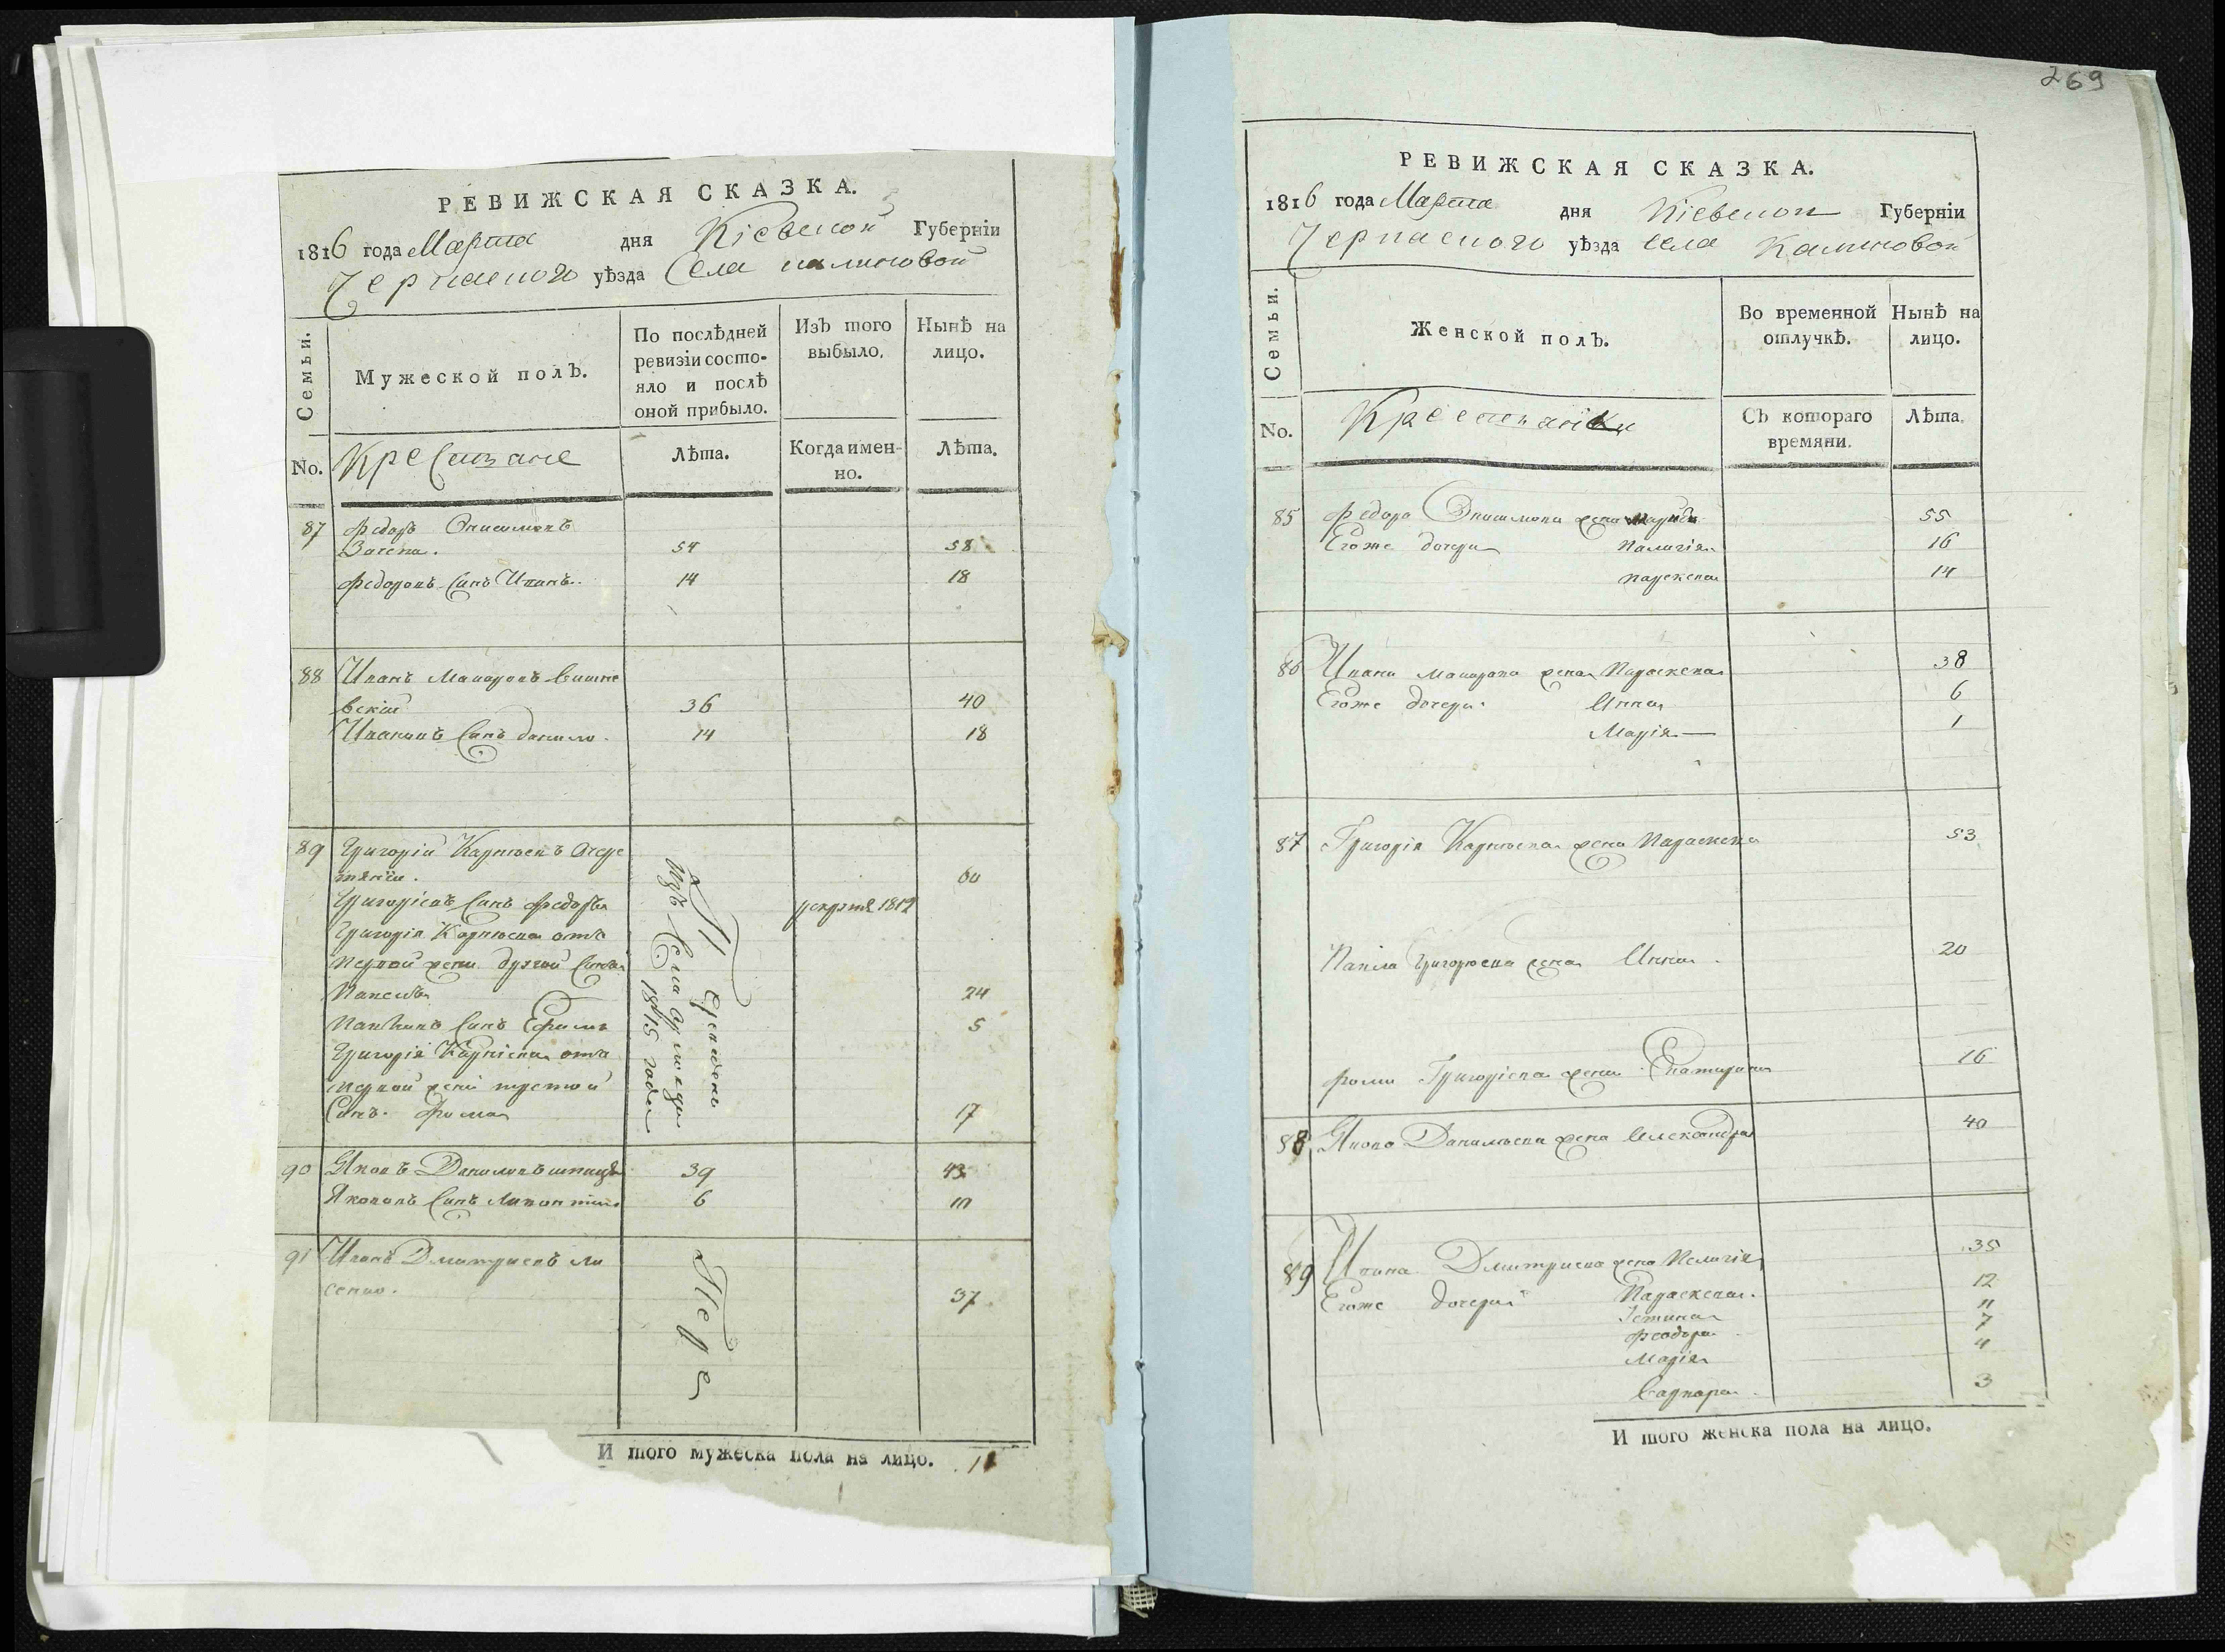 РЕВИЖСКАЯ СКАЗКА.
1816 года Марта дня Кіевской Губерніи
Черкаского уѣзда Села Калиновой
Семьи.
Мужеской полъ.
По послѣдней ревизіи состо-
яло и послѣ
оной прибыло.
Изъ того
выбыло.
Нынѣ на
лицо.
No. Крестяне
Лѣта.
Когда имен-
но.
Лѣта.
87 Федоръ Онисимовъ
54 58
Федоровъ Синъ Иванъ 14 18
88 Иванъ Макаровъ Вишне
вскій 36 40
Ивановъ Синъ Данило 14 18
89 Григорій Карповъ Очере
тяній. 60
Григоріевъ Синъ Федоръ 1812
Григорія Карпова отъ
первой жени другой Синъ
Павелъ 24
Павловъ Синъ Ефимъ 5
Григорія Карпова отъ
первой жени третой
Синъ Фома 17
Переведени
изъ Села
1815 года
90 Яковъ Даниловъ 39 43
Якововъ Синъ 6 10
91 Иванъ Дмитріевъ Ли
сенко. 37
Пере
И того мужеска пола на лицо. 11
269
РЕВИЖСКАЯ СКАЗКА.
1816 года Марта дня Кіевской Губерніи
Черкаского уѣзда Села Калиновой
Семьи.
Женской полъ.
Во временной
отлучкѣ.
Нынѣ на
лицо.
No. Крестянки
Съ котораго
времяни.
Лѣта.
85 Федора Онисимова жена Марія 55
Егоже дочери Палагія 16
Параскева 14
86 Ивана Макарова жена Параскева 38
Егоже дочери Анна 6
Марія 1
87 Григорія Карпова жена Параскева 53
Павла Григорьева жена Анна 20
Фоми Григоріева жена Екатерина 16
88 Якова Данилова жена Александра 40
89 Ивана Дмитриева жена Пелагія 35
Егоже дочери Параскева 12
Устина 11
Феодора 7
Марія 4
Варвара 3
И того женска пола на лицо.